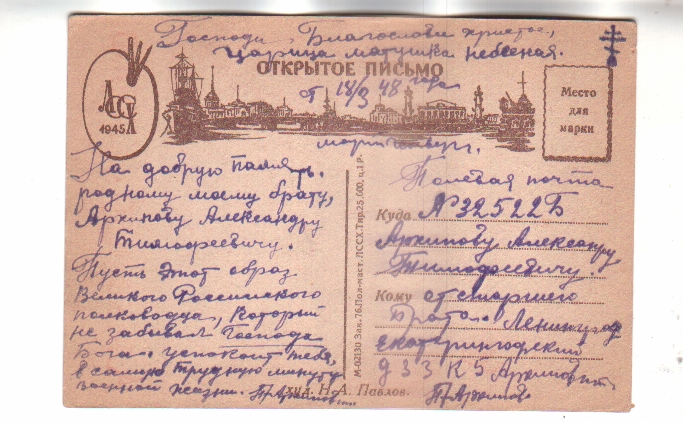 Господи, Благослови христос,
Царица матушка небесная.
ОТКРЫТОЕ ПИСЬМО
от 18/3 48 года
ЛССХ
1945
Место
для
марки
На добрую память.
родному моему брату,
Архипову Александру
Тимофеевичу.
Пусть этот образ
Великого Российского
полководца, который
не забывал Господа
Бога. успокоит тебя,
в самую трудную минуту
военной жизни. П. Архипов
М-02130 Зак. 76. Пол-маст. ЛССХ. Тир. 25.000, ц. 1 р.
Полевая почта
Куда №32522Б
Архипову Александру
Тимофеевичу.
Кому от старшего
Брата. Ленинград
екатерингофский
д 33 К 5 Архипов
П. Архипов
худ. Н. А. Павлов.